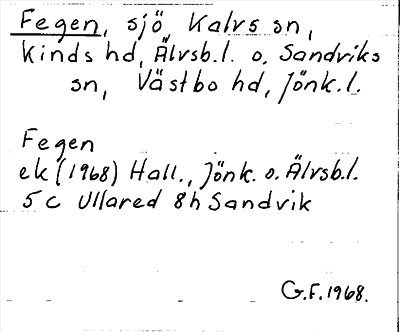 Fegen, sjö, Kalvs sn,
Kinds hd, Älvsb.l. o. Sandviks
sn, Västbo hd, Jönk.l.
Fegen
ek (1968) Hall., Jönk. o. Älvsb.l.
5 c Ullared 8 h Sandvik
G.F. 1968.